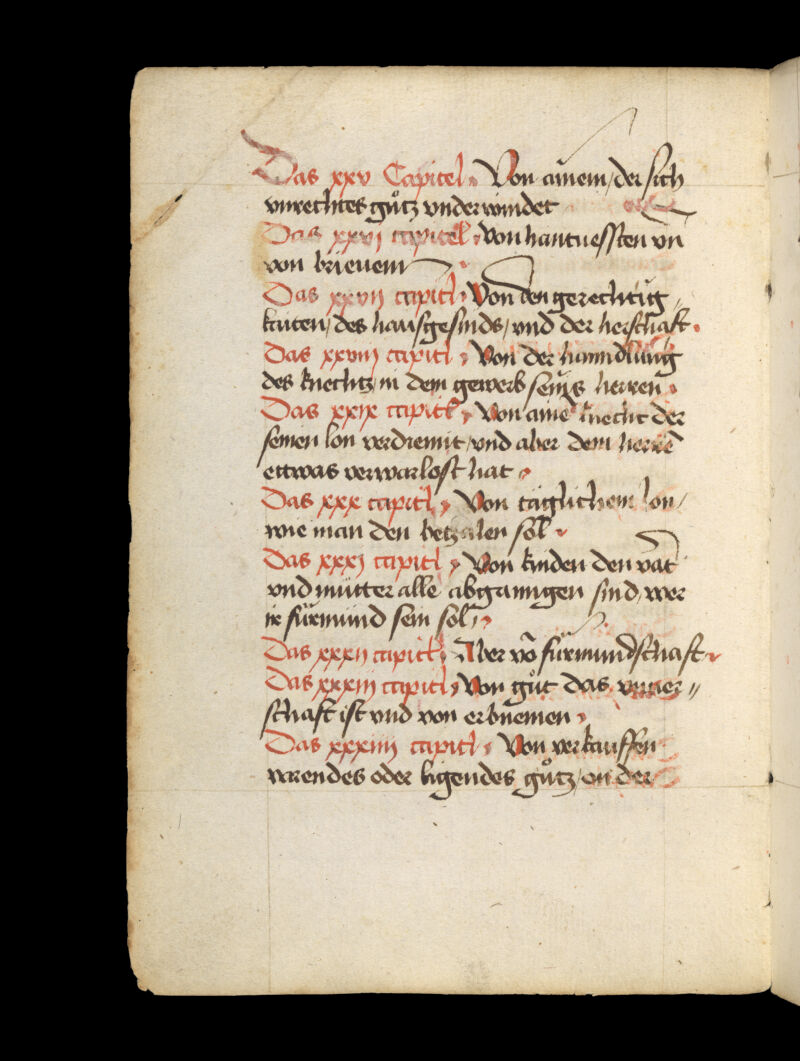 Das xxv Capitel Von ainem / der sich
vnrechtes gůtz vnderwindet
Das xxvj capitel von hantuessten vn̄
von brieuem
Das xxvij capitl Von den gerechtig〃
kaiten / des hausgesinds / vnd der herschaft
Das xxviij capitl Von der hanndlung
des knechtz / in dem gewerb seins herren
Das xxix capitl Von aine knecht der
seinen lon verdiennt / vnd aber dem herrē
ettwas verwarlost hat
Das xxx capitl Von täglichem lon /
wie man den betzalen sol
Das xxxj capitl Von kinden den vat
vnd mütter alle abganngen sind / wer
ir fürmund sein sol
Das xxxij capitl Aber vō fürmundschaft
Das xxxiij capitl Von gůt das 〃
schaft ist vnd von erbnemen
Das xxxiiij capitl Von verkauffen
varendes oder ligendes gůtz / on der